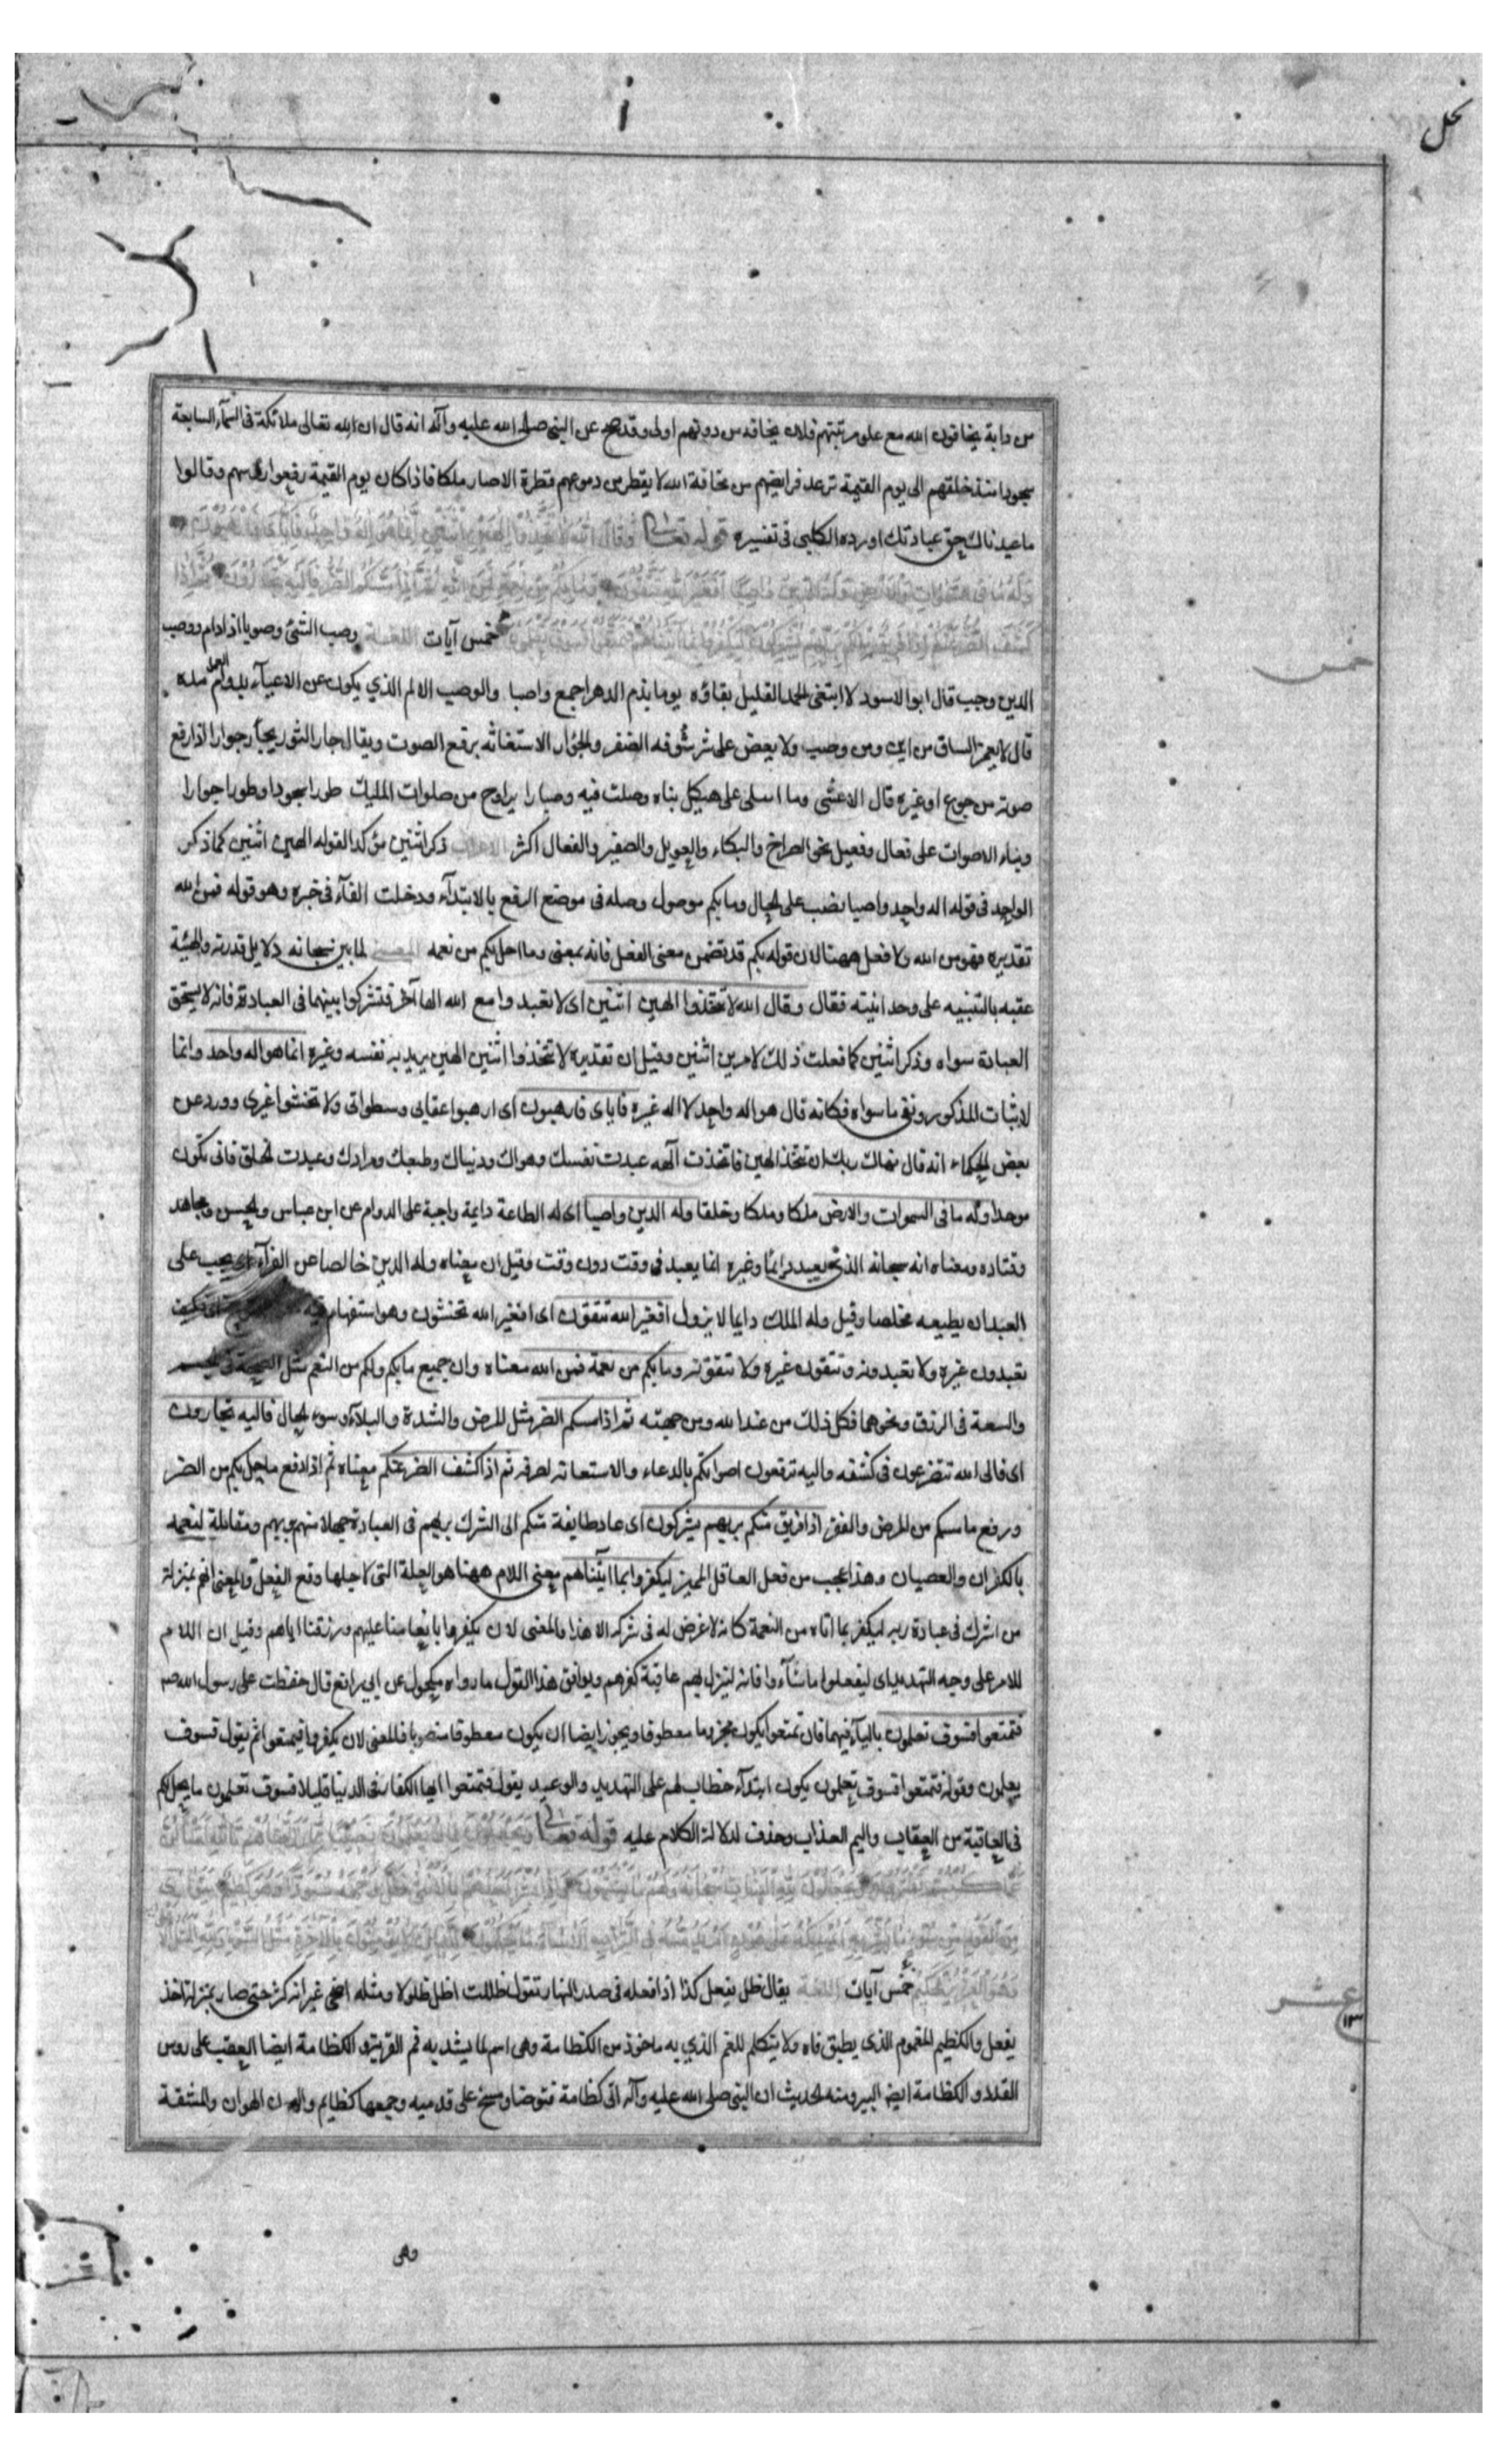 نحل
من دابة يخافون الله مع علو مرتبتهم فلان يخافه من دونهم اولى وقد صح عن النبى صلى الله عليه وآله انه قال ان لله تعالى ملائكة فى السمآء السابعة
سجودا منذ خلقهم الى يوم القيمة ترعد فرايضهم من مخافة الله لا يقطر من دموعهم قطرة الا صار ملكا فاذا كان يوم القيمة رفعوا رؤسهم وقالوا
ما عبدناك حق عبادتك اورده الكلبى فى تفسيره قوله تعالى وقال الله لا تتخذوا الهين اثنين انما هو اله واحد فاياى فارهبون
وله ما فى السموات والارض وله الدين واصبا افغير الله تتقون وما بكم من نعمة فمن الله ثم اذا مسكم الضر فاليه تجارون ثم اذا
كشف الضر عنكم اذا فريق منكم بربهم يشركون ليكفروا بما آتيناهم فتمتعوا فسوف تعلمون خمس آيات اللغة وصب الشئ وصوبا اذا دام ووصب
خمس
الدين وجب قال ابو الاسود لا ابتغى الحمد القليل بقاؤه يوما بذم الدهر اجمع واصبا والوصب الالم الذي يكون عن الاعيآء بدوام العمل مدة
قال لا يغمز الساق من اين ومن وصب ولا يعض على شرشوفه الصفر والجؤار الاستغاثه برفع الصوت ويقال جار الثور يجأر جوارا اذا رفع
صوته من جوع او غيره قال الاعشى وما اسلى على هيكل بناه وصلت فيه وصارا يراوح من صلوات المليك طورا سجودا وطورا جوارا
وبناء الاصوات على فعال وفعيل نحو الصراخ والبكاء والعويل والصفير والفعال اكثر الاعراب ذكر اثنين مؤكدا لقوله الهين اثنين كما ذكر
الواحد فى قوله اله واحد واصبا نصب على الحال وما بكم موصول وصله فى موضع الرفع بالابتدآء ودخلت الفآء فى خبره وهو قوله فمن الله
تقديره فهو من الله ولا فعل ههنا لان قوله بكم قد تضمن معنى الفعل فانه بمعنى وما احل بكم من نعمه المعنى لما بين سبحانه دلايل قدرته والهيئة
عقبه بالتنبيه على وحدانيته فقال وقال الله لا تتخذوا الهين اثنين اى لا تعبدوا مع الله الها آخر فتشركوا بينهما فى العبادة فانه لا يستحق
العبادة سواه وذكر اثنين كما فعلت ذلك لامرين اثنين وقيل ان تقديره لا تتخذوا اثنين الهين يريد به نفسه وغيره انما هو اله واحد وانما
لاثبات المذكور ونفى ما سواه فكانه قال هو اله واحد لا اله غيره فاياى فارهبون اى ارهبوا عقابى وسطواتى ولا تخشوا غيرى وورد عن
بعض الحكماء انه قال نهاك ربك ان تتخذ الهين فاتخذت آلهه عبدت نفسك وهواك ودنياك وطبعك ومرادك وعبدت الخلق فانى تكون
موحدا وله ما فى السموات والارض ملكا وملكا وخلقا وله الدين واصبا اى له الطاعة دايمة واجبة على الدوام عن ابن عباس والحسن ومجاهد
وقتاده ومعناه انه سبحانه الذى يعبد دائما وغيره انما يعبد فى وقت دون وقت وقيل ان معناه وله الدين خالصا عن الفرآء اى يجب على
العبد ان يطيعه مخلصا وقيل وله الملك دايما لا يزول افغير الله تتقون اى افغير الله تخشون وهو استفهام فيه
تعبدون غيره ولا تعبدونه وتتقون غيره ولا تتقونه وما بكم من نعمة فمن الله معناه وان جميع ما بكم ولكم من النعم مثل الصحة فى
والسعة فى الرزق ونحوهما فكل ذلك من عند الله ومن جهته ثم اذا مسكم الضر مثل المرض والشدة والبلآء وسوء الحال فاليه تجارون
اى فالى الله تتضرعون فى كشفه واليه ترفعون اصواتكم بالدعاء والاستعانه لصرفه ثم اذا كشف الضر عنكم معناه ثم اذا دفع ما حل بكم من الضر
ورفع ما مسكم من المرض والفقر اذا فريق منكم بربهم يشركون اى عاد طايفة منكم الى الشرك بربهم فى العبادة جهلا منهم بربهم ومقابلة لنعمه
بالكفران والعصيان وهذا عجب من فعل العاقل المميز ليكفروا بما اتيناهم معنى اللام ههنا هو العلة التى لاجلها وقع الفعل والمعنى انهم بمنزلة
من اشرك فى عبادة ربه ليكفر بما اتاه من النعمة كانه لا غرض له فى شركه الا هذا فالمعنى لان يكفروا بانعامنا عليهم ورزقنا اياهم وقيل ان اللام
للامر على وجه التهديد اى ليفعلوا ما شآءوا فانه لينزل بهم عاقبة كفرهم ويوافق هذا القول ما رواه مكحول عن ابى رافع قال حفظت على رسول الله صه
فتمتعوا فسوف تعلمون باليآء فيهما فان تمتعوا يكون مجزوما معطوفا ويجوز ايضا ان يكون معطوفا منصوبا فالمعنى لان يكفروا فيتمتعوا ثم يقول فسوف
يعلمون وقوله فتمتعوا فسوف تعلمون يكون ابتدآء خطاب لهم على التهديد والوعيد يقول فتمتعوا ايها الكفار فى الدنيا قليلا فسوف تعلمون ما يحل بكم
فى العاقبة من العقاب واليم العذاب وحذف لدلالة الكلام عليه قوله تعالى ويجعلون لما لا يعلمون نصيبا مما رزقناهم تالله لتسألن
عما كنتم تفترون ويجعلون لله البنات سبحانه ولهم ما يشتهون واذا بشر احدهم بالانثى ظل وجهه مسودا وهو كظيم يتوارى
من القوم من سوء ما بشر به ايمسكه على هون ام يدسه فى التراب الا ساء ما يحكمون للذين لا يؤمنون بالآخرة مثل السوء ولله المثل الاعلى
وهو العزيز الحكيم خمس آيات اللغة يقال ظل يفعل كذا اذا فعله فى صدر النهار تقول ظللت اظل ظلولا ومثله اضحى غير انه كثر حتى صار بمنزلة اخذ
عشر
يفعل والكظيم المغموم الذى يطبق فاه ولا يتكلم للغم الذي به ماخوذ من الكظامة وهى اسم لما يشد به فم القربة والكظامة ايضا العقب على روس
القذذ والكظامة ايضا البير ومنه الحديث ان النبى صلى الله عليه وآله اتى كظامة فتوضا ومسح على قدميه وجمعها كظايم والهون الهوان والمشقة
وهى